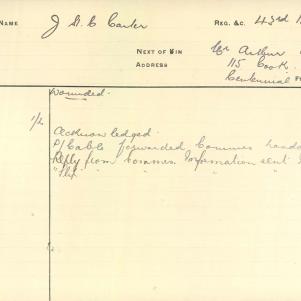 NAME J A C Carter REG. &C. 43rd
NEXT OF KIN Mr Arthur
ADDRESS 115 Cook
Centennial
Wounded.
1/2 Acknowledged.
P/Cable forwarded Commex
Reply from Commex. Information sent
" " "